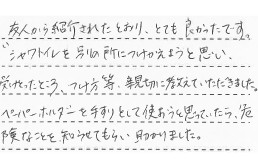 友人から紹介されたとおり、とても良かったです。
シャワトイレを別の所につけかえようと思い、
受けたったところ、つけ方等、親切に教えていただきました。
ペーパーホルダーを手すりとして使おうと思っていたら、危
険なことを知らせてもらい助かりました。